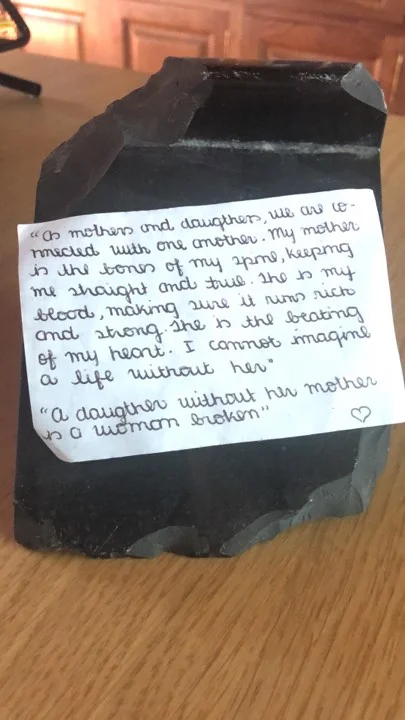 "As mothers and daugthers, we are co-
nnected with one another. My mother
is the bones of my spine, keeping
me straight and true. She is my
blood, making sure it runs rich
and strong. She is the beating
of my heart. I cannot imagine
a life without her"
"a daugther without her mother
is a woman broken"